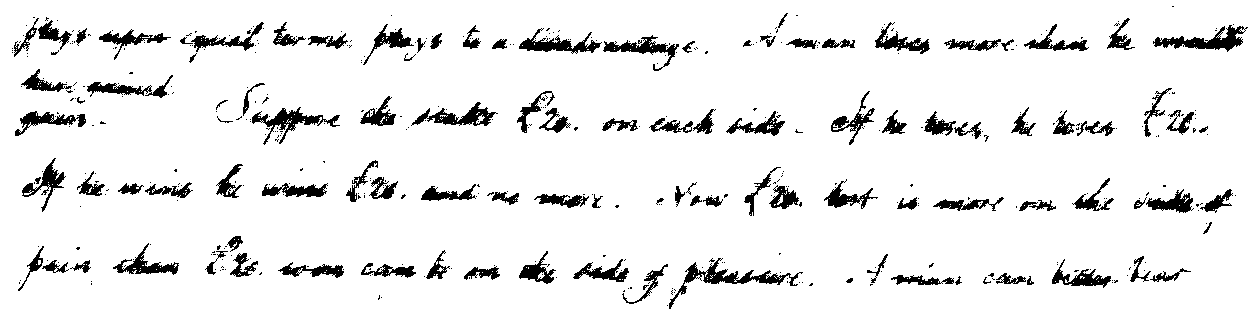 plays upon equal terms plays to a disadvantage. A man loses more than he would
have gained
gain. Suppose the stake £20. on each side. If he loses, he loses £20.
If he wins he wins £20. and no more. Now £20. lost is more on the side of
pain than £20. won can be on the side of pleasure. A man can better bear